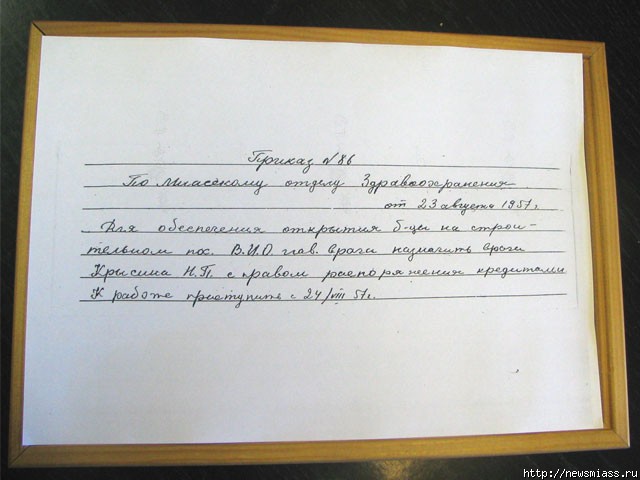 Приказ №86
По Миасскому отделу Здравоохранения
от 23 августа 1957г.
Для обеспечения открытия б-цы на строи-
тельном пос. В.И.О. глав. врача назначить врача
Крысина Н.П. с правом распоряжения кредитами
К работе приступить с 24/VIII 57г.
http://newsmiass.ru